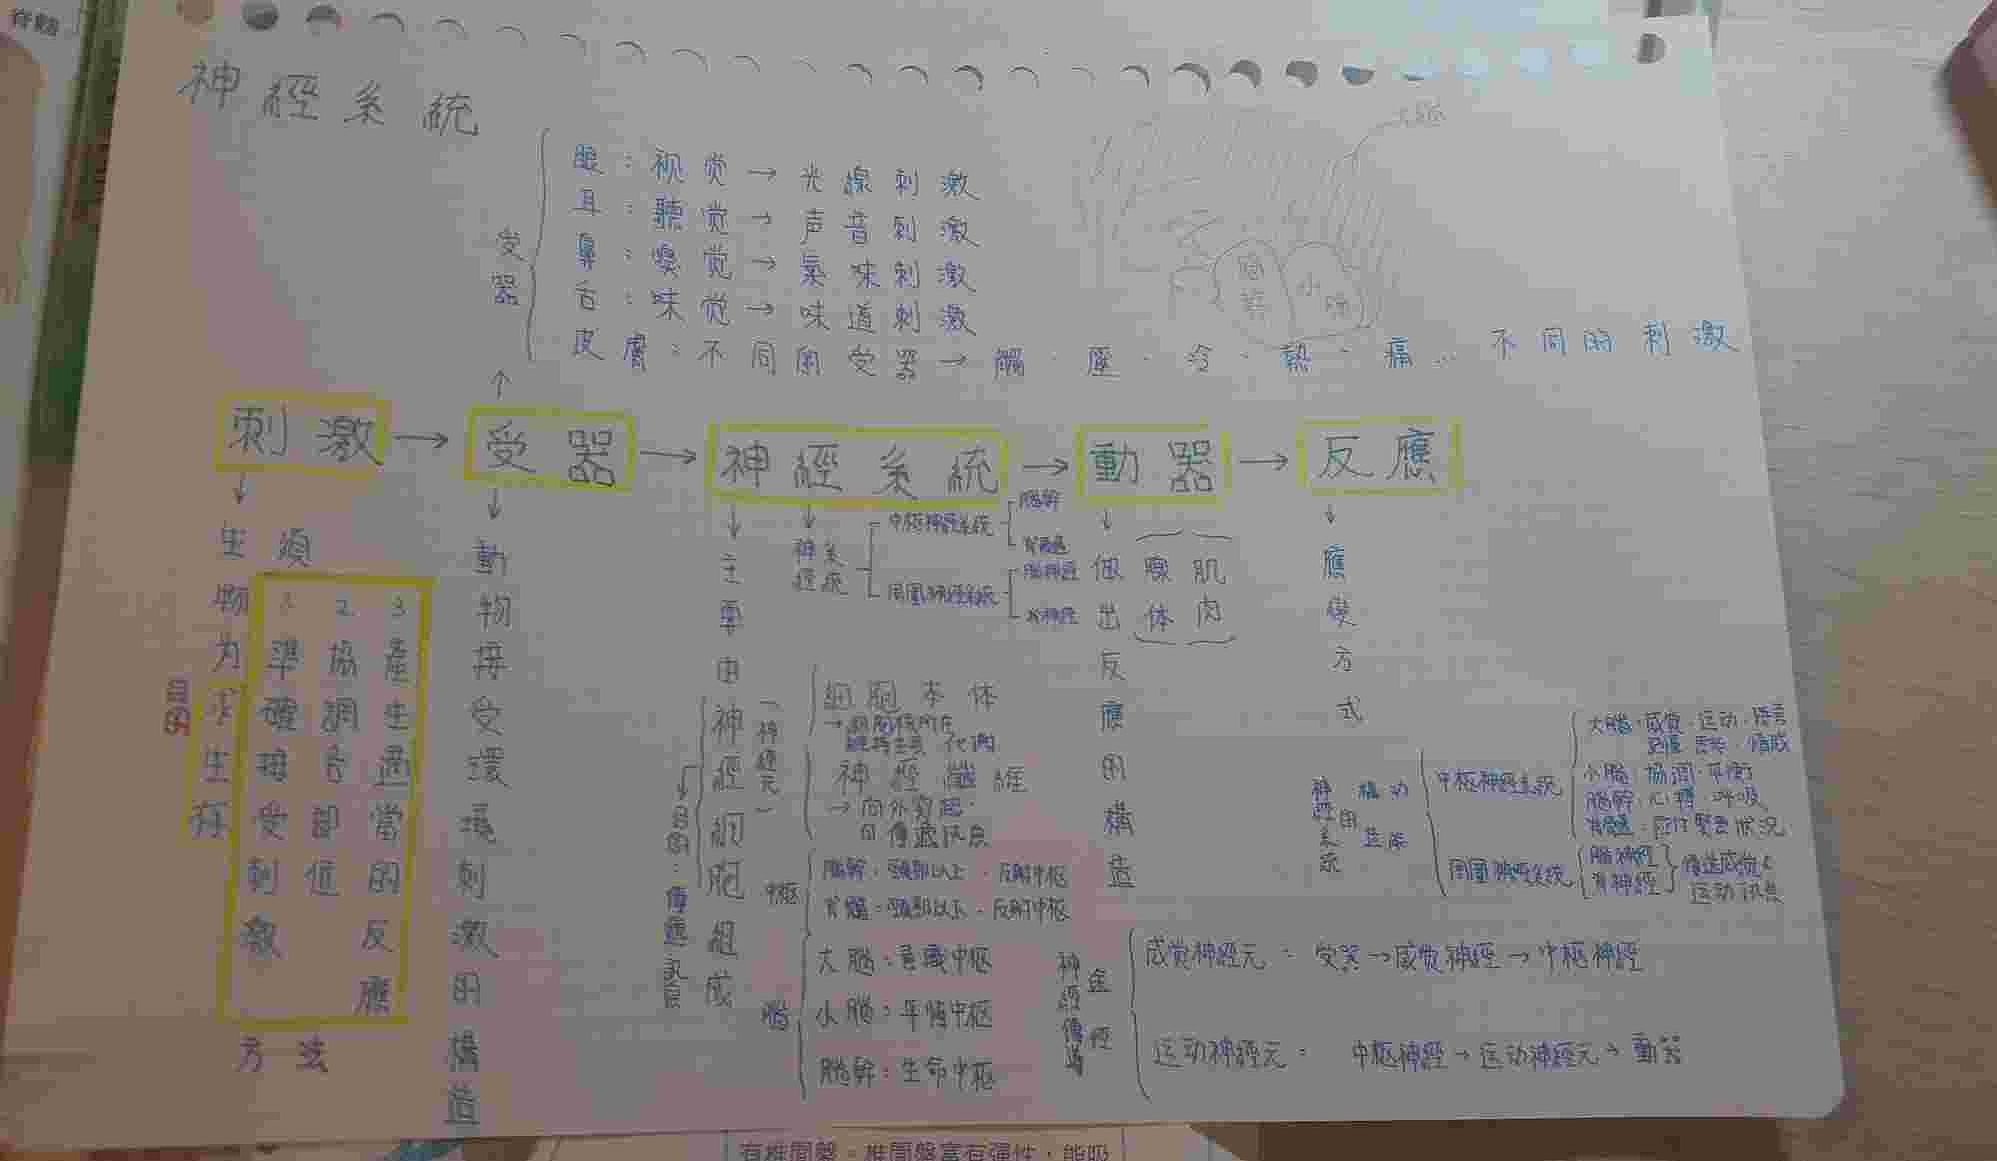 神經系統
大腦
受器
眼：视覚→光線刺激
耳：聽覚→声音刺激
鼻：嗅覚→氣味刺激
舌：味覚→味道刺激
皮膚：不同的受器→觸、壓、冷、熱、痛…不同的刺激
腦幹
小腦
刺激→受器→神經系統→動器→反應
生物为求生存
目的
須
1 準確接受刺激
2 協調各部位
3 產生適當的反應
方法
動物接受環境刺激的構造
主要由神經細胞組成
目的：傳遞訊息
(神經元)
細胞本体
神經纖維
→向外突起
神經系統
中樞神經系統
周圍神經系統
腦神經
脊神經
中樞
腦幹：頸部以上、反射中樞
脊髓：頸部以下、反射中樞
腦
大腦：意識中樞
小腦：平衡中樞
腦幹：生命中樞
做出反應的構造
腺体
肌肉
應變方式
中樞神經系統
大腦：感覚、运动、語言
小腦：協調、平衡
腦幹：心搏、呼吸
周圍神經系統
腦神經
脊神經
傳送感覚&
运动訊息
神經傳導途徑
感覚神經元：受器→感覚神經→中樞神經
运动神經元：中樞神經→运动神經元→動器
有椎間盤。椎間盤富有彈性，能吸
脊髓